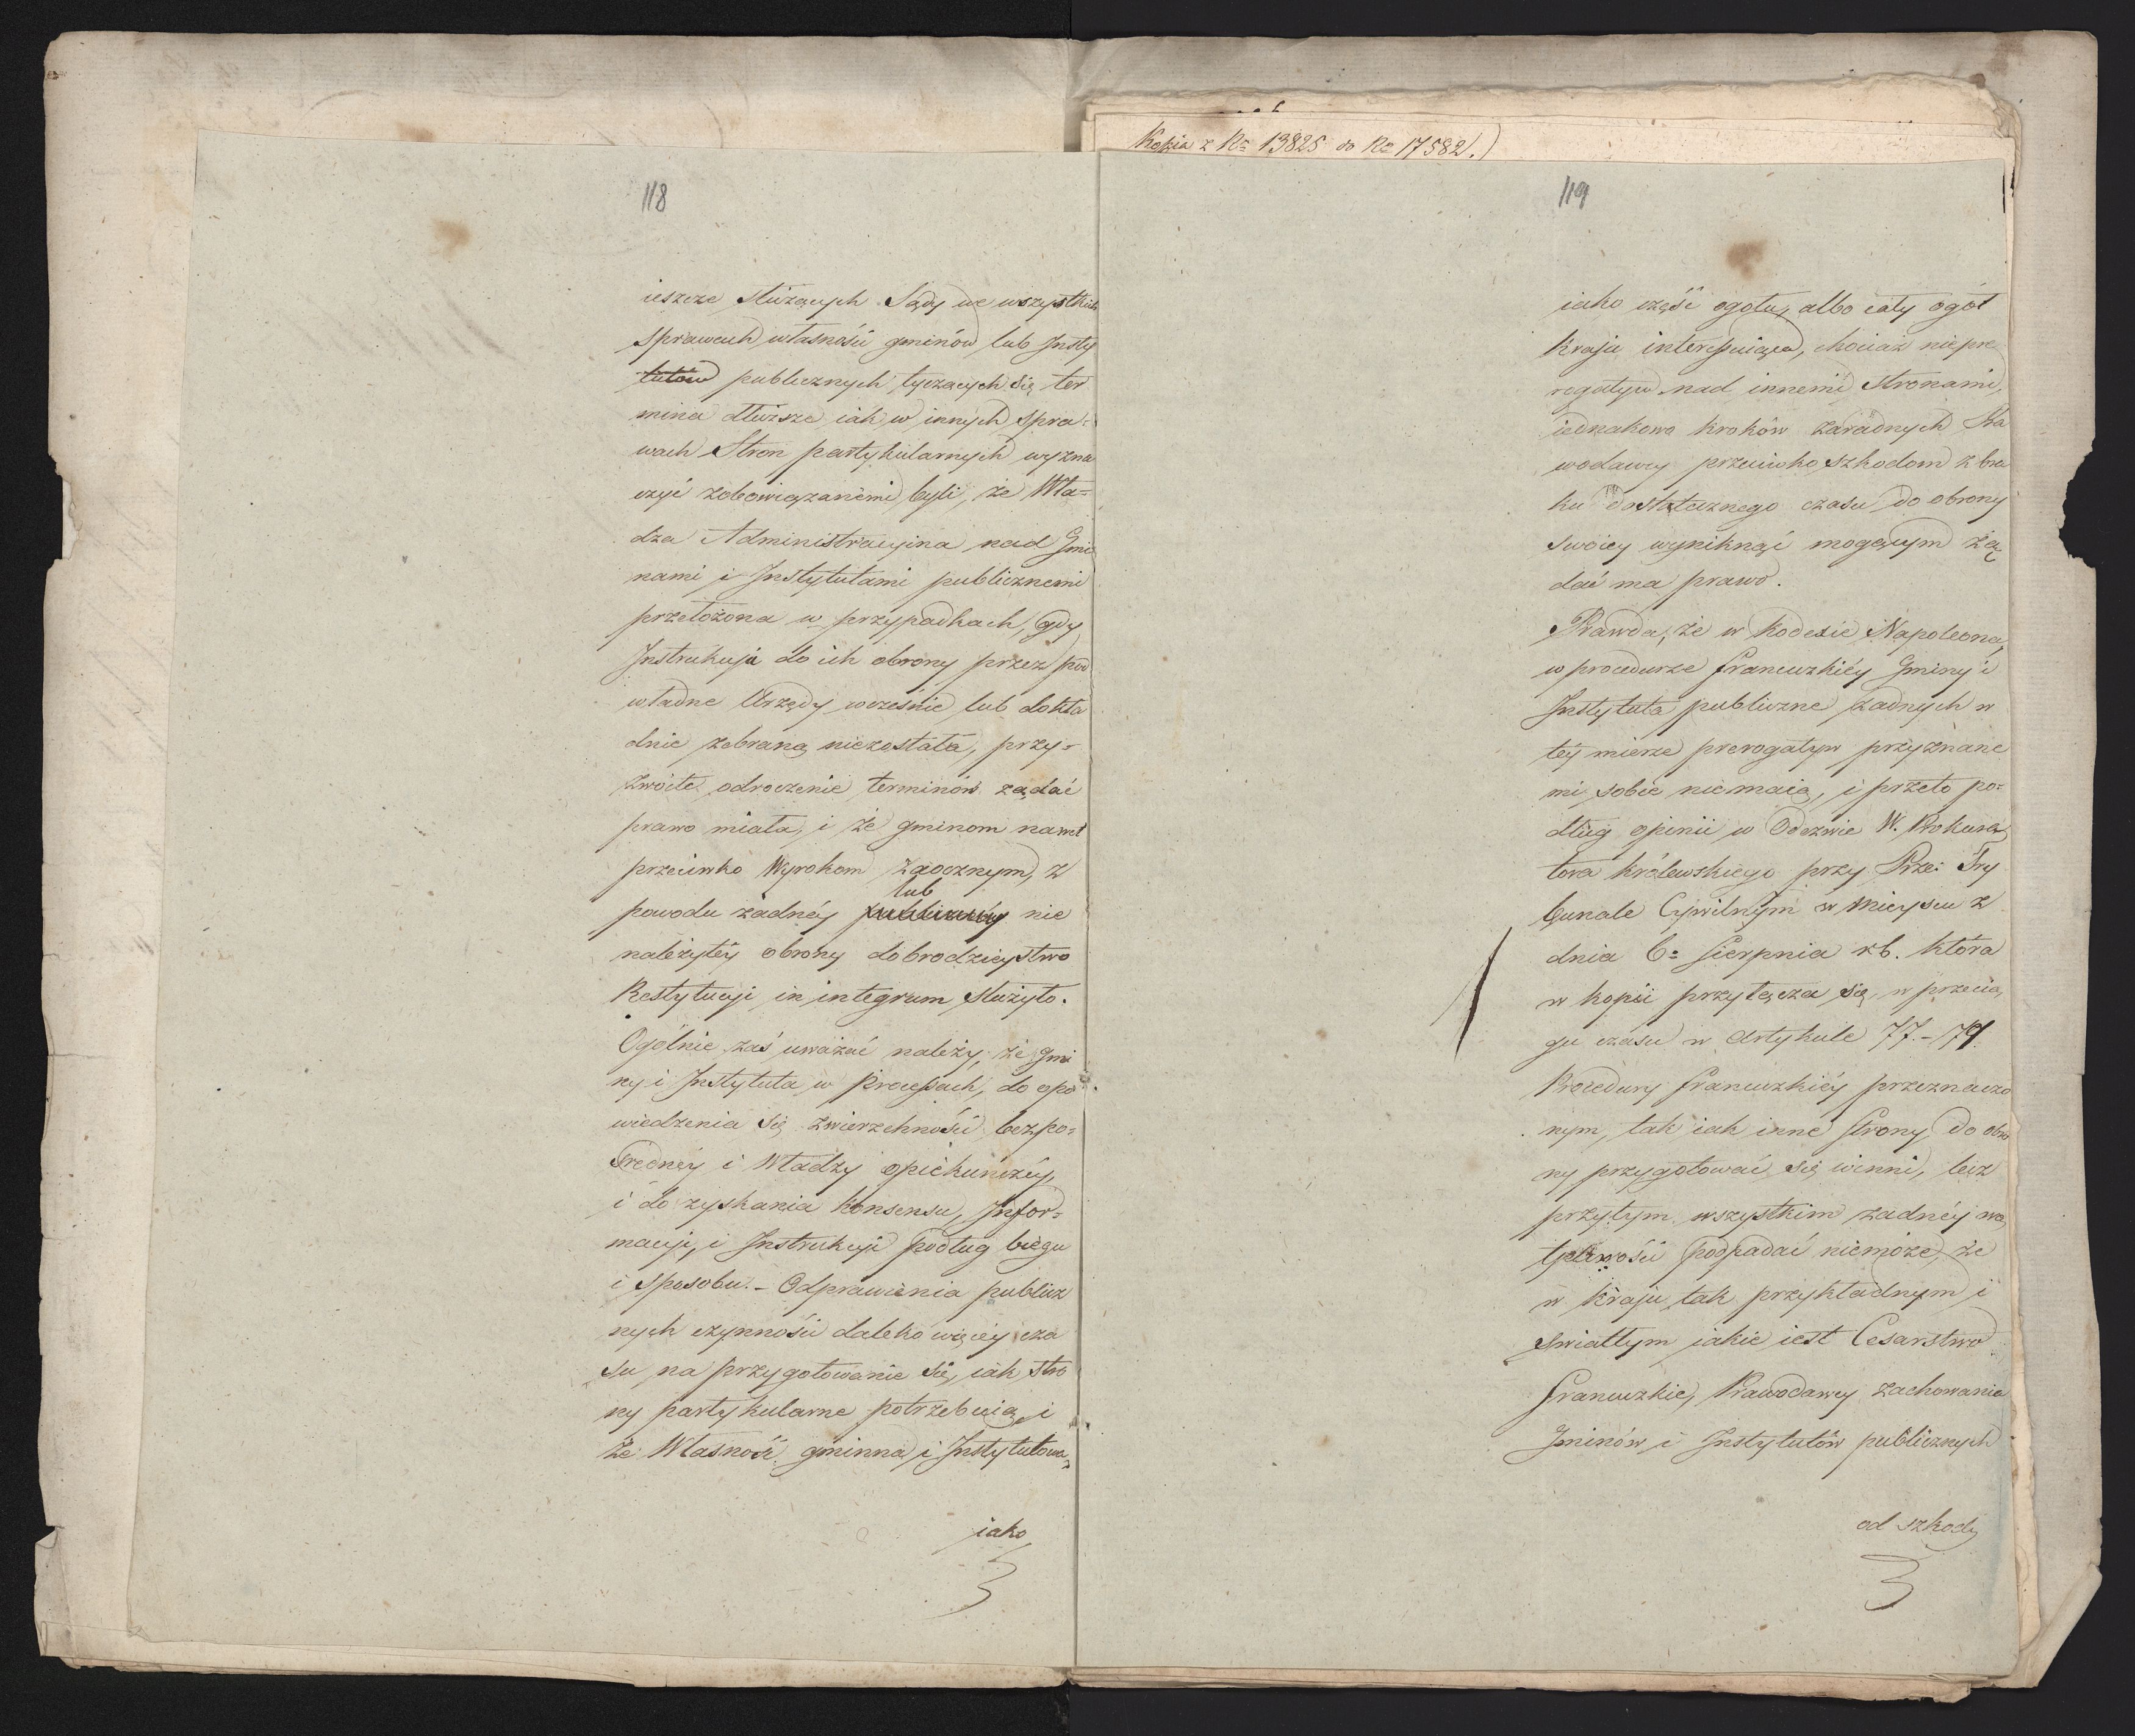 118
ieszcze służących. Sądy we wszystkich
sprawach własności gminów lub Insty
tutów publicznych tyczących się ter
mina dłuższe iak w innych spra-
wach Stron partykularnych wyzna
czyć zobowiązanemi byli, że Wła=
dza Administracyina nad Gmi
nami i Instytutami publicznemi
przełożona w przypadkach, gdy
Instrukcja do ich obrony przez pod
władne Urzędy wcześnie lub dokła
dnie zebraną niezostała, przy-
zwoite odroczenie terminów żądać
prawo miała, i że gminom nawet
przeciwko Wyrokom zaocznym, z
lub
powodu żadnéy publiczney nie
należytéy obrony dobrodzieystwo
Restytucji in integrum służyło.
Ogólnie zaś uważać należy, że gmi
ny i Instytuta w processach, do opo
wiedzenia się zwierzchności bezpo=
średnéy i Władzy opiekuńczéy,
i do zyskania konsensu, Infor=
macyi, i Instrukcyi podług biegu
i sposobu. - Odprawienia publicz
nych czynności daleko więcéy cza
su na przygotowanie się, iak stro
ny partykularne potrzebuią, i
że Własność gminna i Instytutowa,
iako
Kopia z No 13825 do No 17582.)
119
iako część ogółu, albo cały ogół
Kraju interessuiąca, chociaż niepre
rogatyw nad innemi Stronami,
iednakowo kroków zaradnych Pra
wodawcy przeciwko szkodom z bra
ku dostatecznego czasu do obrony
swoiey wyniknąć mogącym żą
dać ma prawo.
Prawda, że w kodexie Napoleona,
w procedurze francuzkiéy Gminy i
Instytuta publiczne żadnych w
téy mierze prerogatyw przyznane
mi sobie niemaią, i przeto po=
dług opinii w Odezwie W. Prokura
tora królewskiego przy Prze: Try
bunale Cywilnym w mieyscu z
dnia 6o Sierpnia rb. która
w kopii przyłącza się, w przecią
gu czasu w artykule 77.-79.
Procedury francuzkiéy przeznaczo
nym, tak iak inne Strony do obro
ny przygotować się winni, lecz
przytym wszystkim żadnéy wą
tpliwości podpadać niemoże, że
w kraju tak przykładnym i
światłym iakie iest Cesarstwo
francuzkie, Prawodawcy zachowania
Gminów i Instytutów publicznych
od szkody